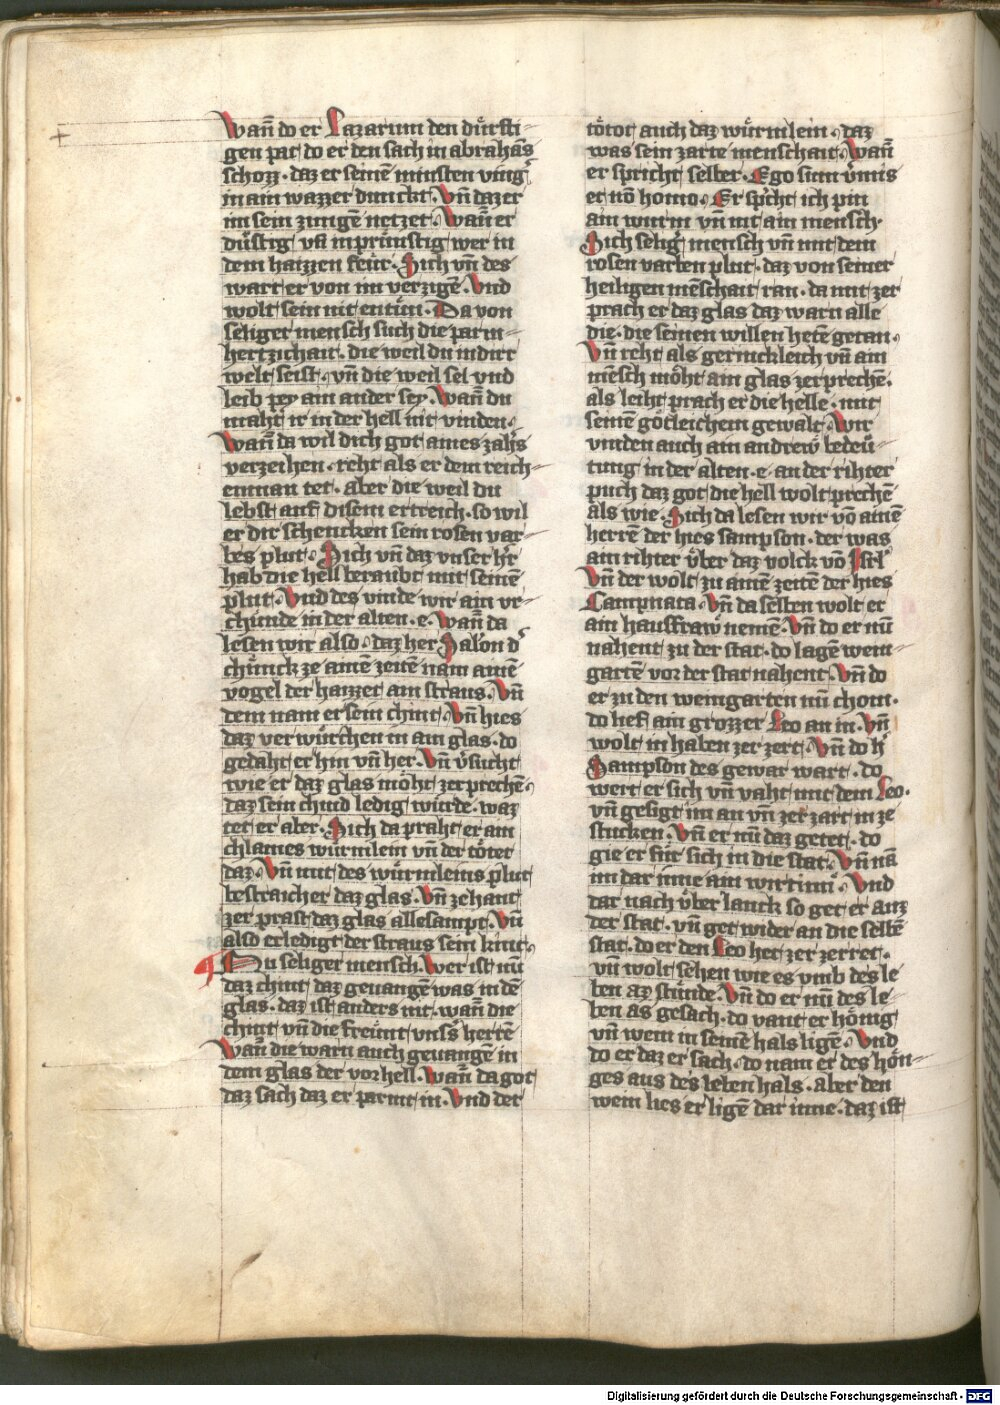 Wan̄ do er Lazarum den dürfti-
gen pat do er den sach in abrahās
schozz. daz er seinē minsten ving̓
in ain wazzer dunckt. Vn̄ daz er
im sein zungē netzet. Wan̄ er
dürstig vn̄ inprünstig wer in
dem haizzen feür. Sich vn̄ des
wart er von im verzigē. Vnd
wolt sein nit entün. Da von
seliger mensch such die parm-
hertzichait. die weil du in dirr
welt seist. vn̄ die weil sel vnd
leib pey ain ander sey. Wan̄ du
maht ir in der hell nit vinden.
Wan̄ da wil dich got aines zah̓s
verzeihen. reht als er dem reich-
en man tet. aber die weil du
lebst auff disem ertreich. so wil
er dir schencken sein rosen var-
bes plut. Sich vn̄ daz vnser h̓r
hab die hell beraubt mit seinē
plut. Vnd des vinde wir ain vr-
chünde in der alten. e. Wan̄ da
lesen wir also. daz her Salōn d̓
chünck ze ainē zeitē nam ainē
vogel der haizzet ain straus. Vn̄
dem nam er sein chint. Vn̄ hies
daz ver würchen in ain glas. do
gedaht er hin vn̄ her. Vn̄ v̓sucht
wie er daz glas möht zerprechē.
daz sein chind ledig würde. waz
tet er aber. Sich da praht er ain
chlaines würmlein vn̄ der tötet
daz. Vn̄ mit des würmleins plut
bestraich er daz glas. Vn̄ zehant
zer prast daz glas allesampt. Vn̄
also erledigt der straus sein kint.
Du seliger mensch. Wer ist nū
daz chint daz geuangē was in dē
glas. daz ist anders nit. wan̄ die
chint vn̄ die freünt vns̓s herrē
Wan̄ die warn auch geuangē in
dem glas der vorhell. Wan̄ da got
daz sach daz er parmt in. Vnd der
tötot auch daz würmlein. daz
was sein zarte menschait. Wan̄
er spricht selber. Ego sum v̓mis
et nō homo. Er sp̓cht ich pin
ain wurm vn̄ nit ain mensch.
Sich selig̓ mensch vn̄ mit dem
rosen varben plut. daz von seiner
heiligen mēschait ran. da mit zer
prach er daz glas daz warn alle
die. die seinen willen hetē getan.
Vn̄ reht als geringkleich vn̄ ain
mēsch möht ain glas zerprechē.
als leiht prach er die helle. mit
seinē götleichem gewalt. Wir
vinden auch ain andrew bedeü-
tung in der alten. e. an der rihter
puch daz got die hell wolt prechē
als wie. Sich da lesen wir vō ainē
herrē der hies sampson. der was
ain rihter über daz volck vō Isrl̓
Vn̄ der wolt zu ainē zeitē der hies
Campnata. Vn̄ da selben wolt er
ain hausfraw nemē. Vn̄ do er nū
nahent zu der stat. do lagē wein-
gartē vor der stat nahent. Vn̄ do
er zu den weingarten nū chom.
do lief ain grozzer Leo an in. Vn̄
wolt in haben zer zert. Vn̄ do h̓
Sampson des gewar wart. do
wert er sich vn̄ vaht mit dem Leo.
vn̄ gesigt im an vn̄ zer zart in ze
stucken. Vn̄ er nū daz getet. do
gie er für sich in die stat. Vn̄ nā
im dar inne ain wirtinn̄. Vnd
dar nach über lanck so get er auz
der stat. vn̄ get wider an die selbē
stat. do er den Leo het zer zerret.
vn̄ wolt sehen wie es vmb des le
ben az stünde. Vn̄ do er nū des le-
ben as gesach. do vant er hönig
vn̄ wein in seinē hals ligē. Vnd
do er daz er sach. do nam er des hön-
ges aus des leben hals. Aber den
wein lies er ligē dar inne. daz ist
Digitalisierung gefördert durch die Deutsche Forschungsgemeinschaft - DFG